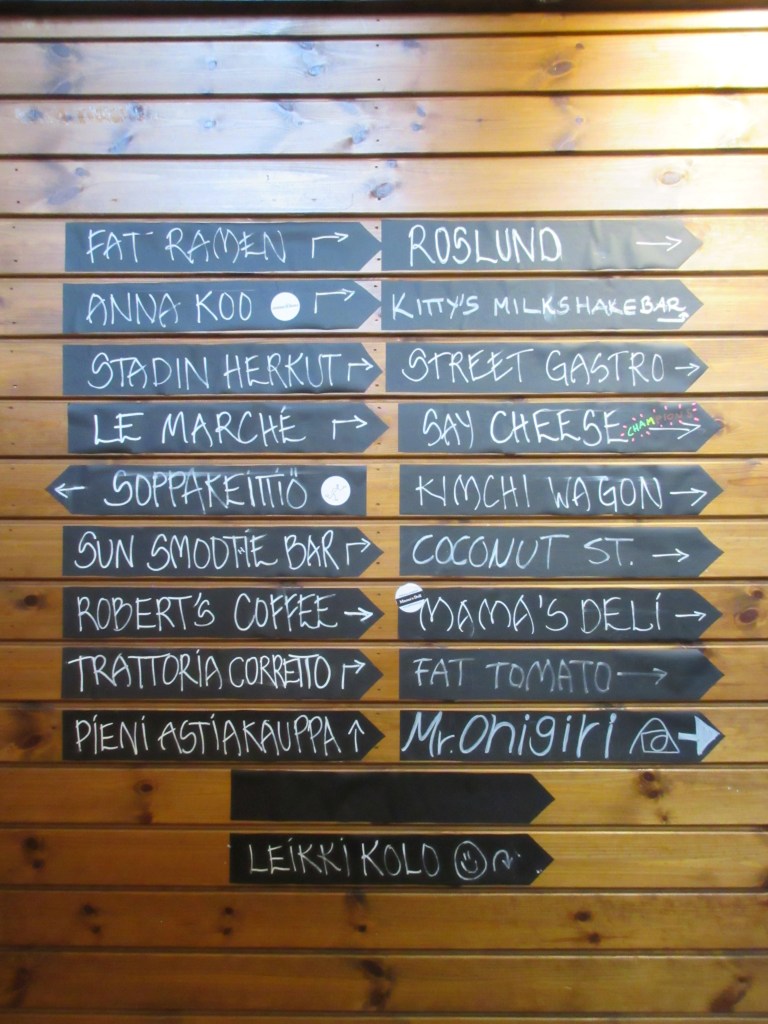 FAT RAMEN
ROSLUND
ANNA KOO
KITTY'S MILKSHAKEBAR
STADIN HERKUT
STREET GASTRO
LE MARCHÉ
SAY CHEESE CHAMPIONS
SOPPAKEITTIÖ
KIMCHI WAGON
SUN SMOOTHIE BAR
COCONUT ST.
ROBERT'S COFFEE
MAMA'S DELI
TRATTORIA CORRETTO
FAT TOMATO
PIENI ASTIAKAUPPA
Mr. Onigiri
LEIKKI KOLO